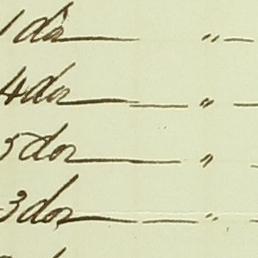 1 do — " —
4 do — " —
5 do — "
3 do — " —